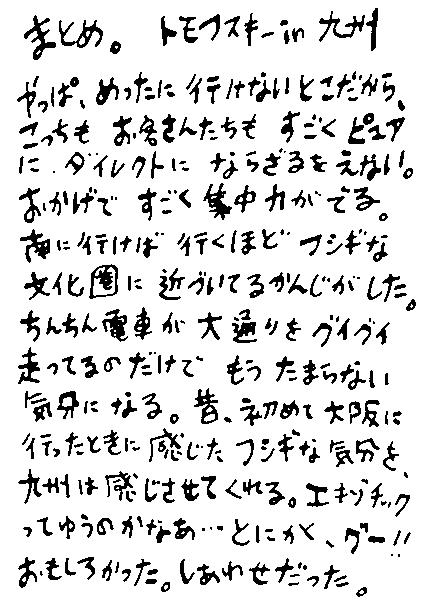 まとめ。 トモフスキーin九州
やっぱ、めったに行けないとこだから、
こっちもお客さんたちもすごくピュア
に、ダイレクトにならざるをえない。
おかげですごく集中力がでる。
南に行けば行くほどフシギな
文化圏に近づいてるかんじがした。
ちんちん電車が大通りをグイグイ
走ってるのだけでもうたまらない
気分になる。昔、初めて大阪に
行ったときに感じたフシギな気分を、
九州は感じさせてくれる。エキゾチック
ってゆうのかなあ…とにかく、グー!!
おもしろかった。しあわせだった。